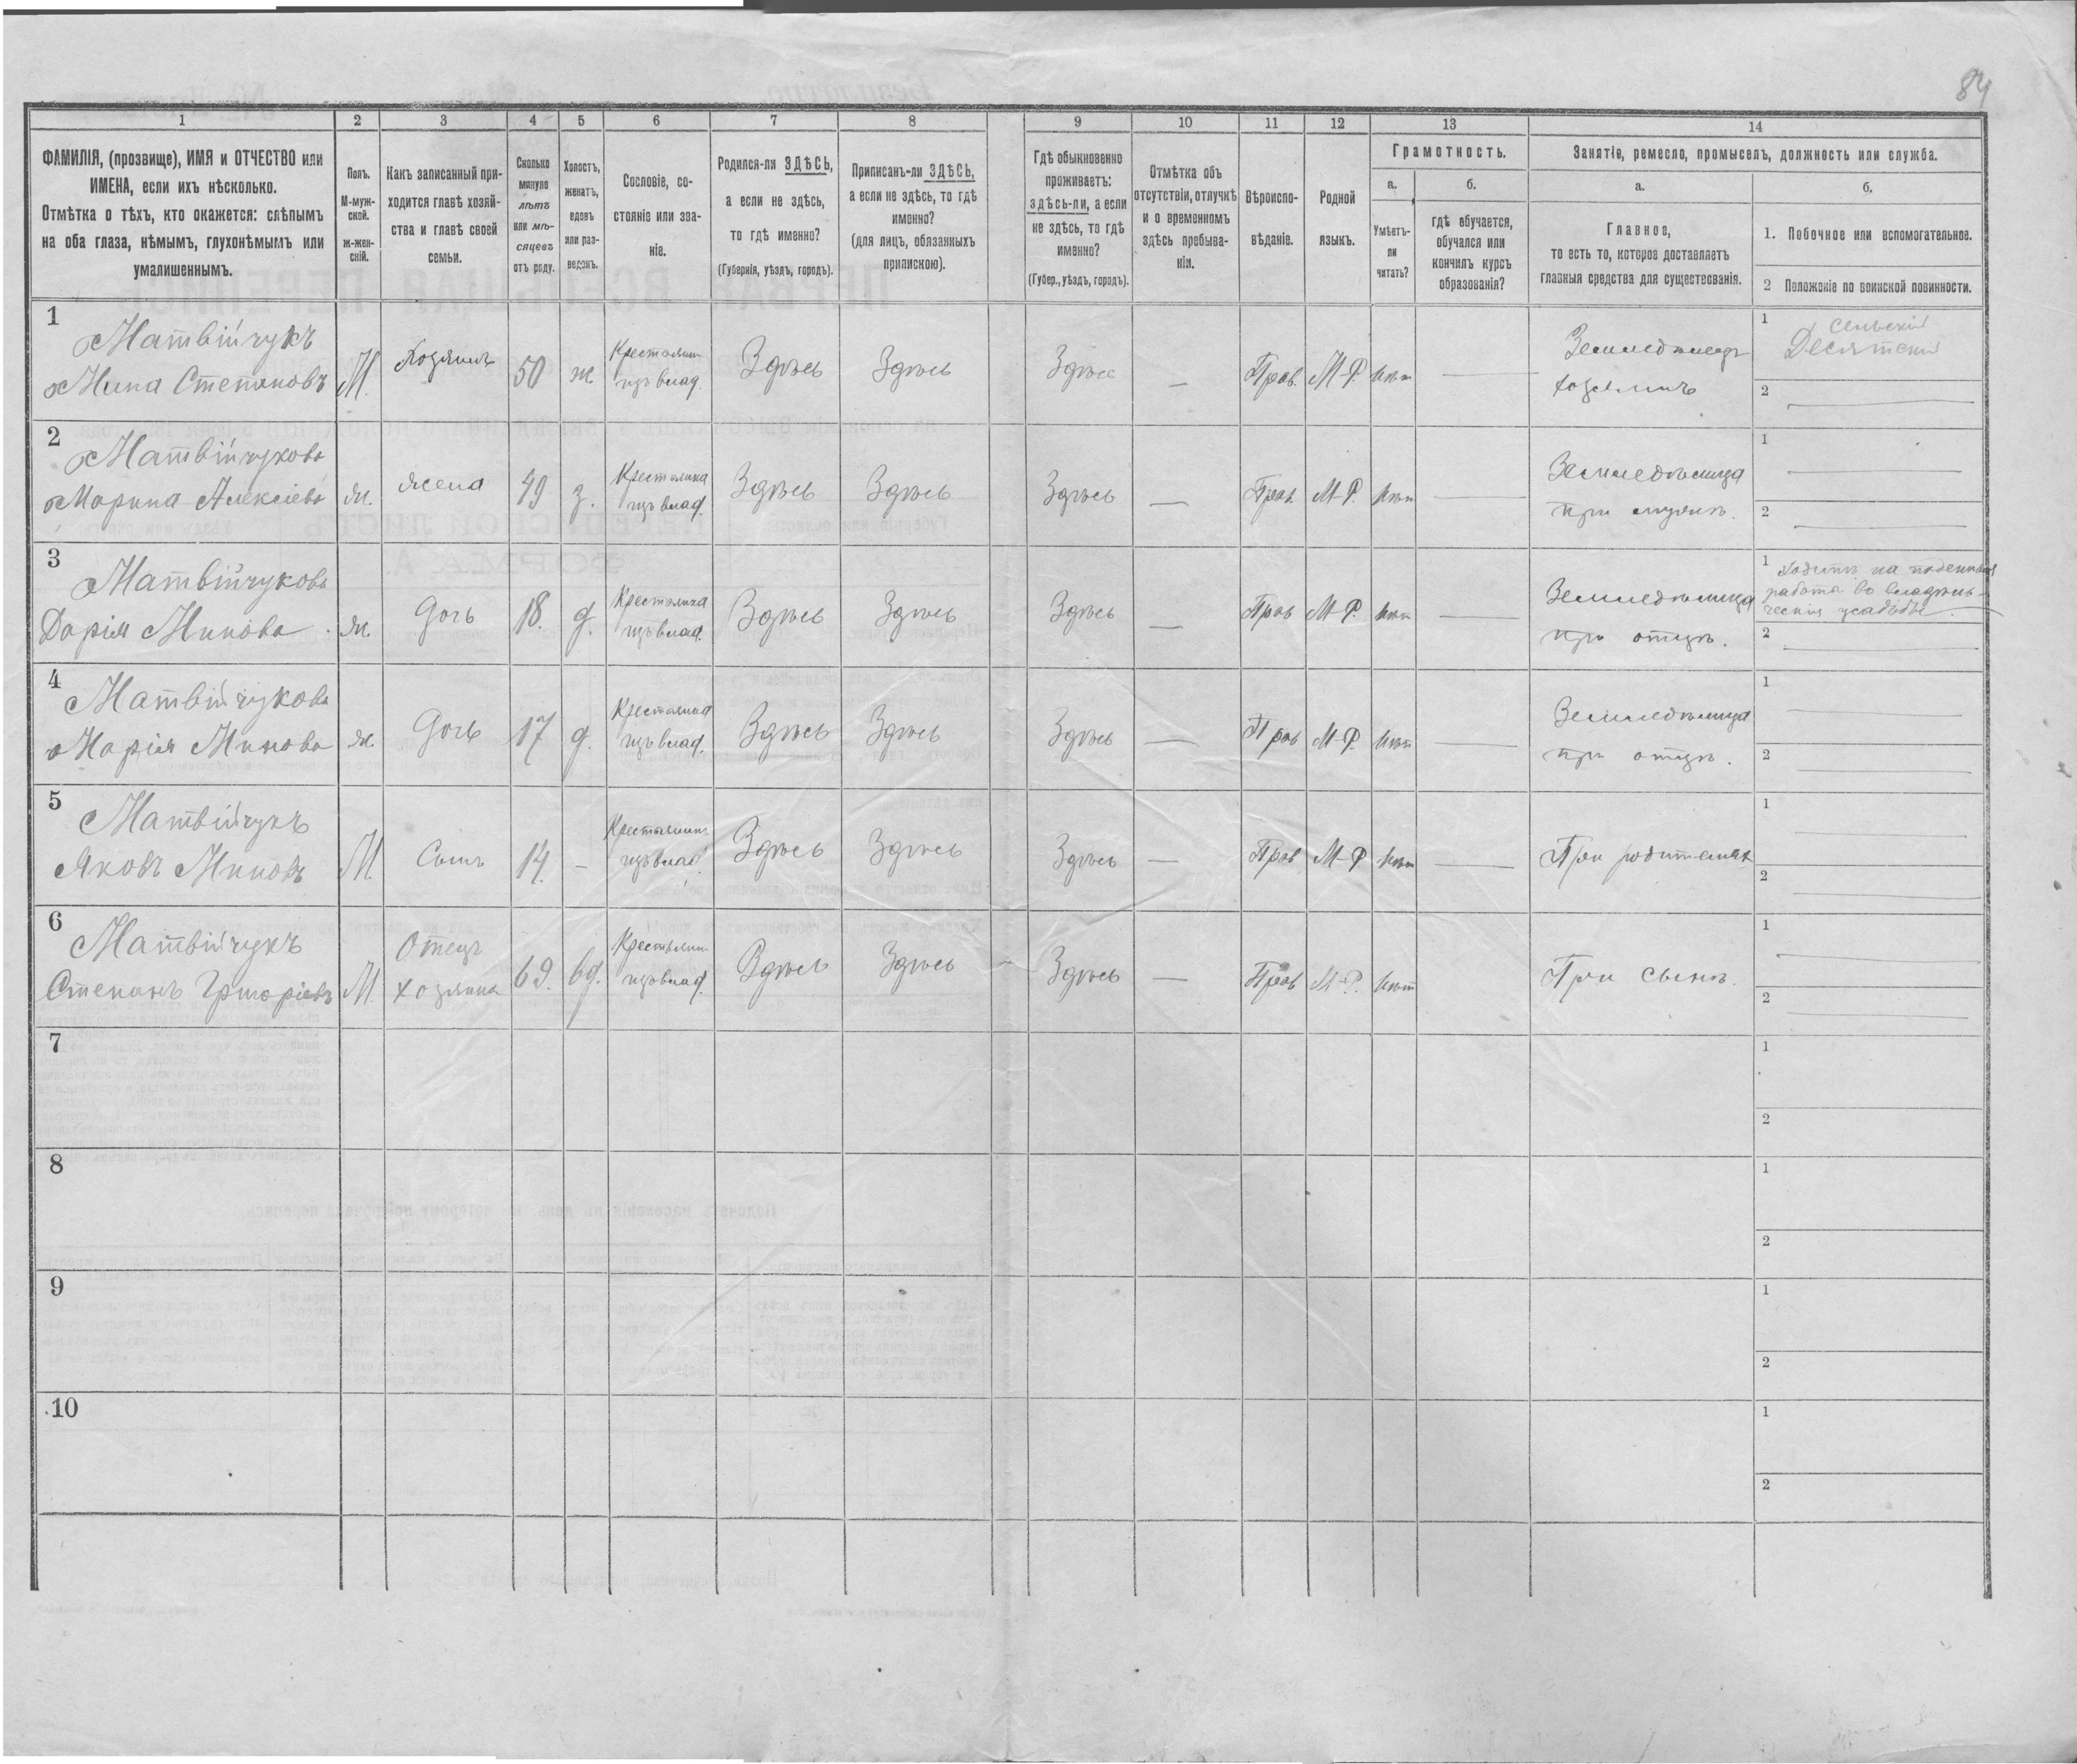 84
1 2 3 4 5 6 7 8 9 10 11 12 13 14
ФАМИЛІЯ, (прозвище), ИМЯ и ОТЧЕСТВО или
ИМЕНА, если ихъ нѣсколько.
Отмѣтка о тѣхъ, кто окажется: слѣпымъ
на оба глаза, нѣмымъ, глухонѣмымъ или
умалишеннымъ.
Полъ.
М-муж-
ской.
ж-жен-
скій.
Какъ записанный при-
ходится главѣ хозяй-
ства и главѣ своей
семьи.
Сколько
минуло
лѣтъ
или мѣ-
сяцевъ
отъ роду.
Холостъ,
женатъ,
вдовъ
или раз-
веденъ.
Сословіе, со-
стояніе или зва-
ніе.
Родился-ли ЗДѢСЬ,
а если не здѣсь,
то гдѣ именно?
(Губернія, уѣздъ, городъ).
Приписанъ-ли ЗДѢСЬ,
а если не здѣсь, то гдѣ
именно?
(для лицъ, обязанныхъ
припискою).
Гдѣ обыкновенно
проживаетъ:
здѣсь-ли, а если
не здѣсь, то гдѣ
именно?
(Губер., уѣздъ, городъ).
Отмѣтка объ
отсутствіи, отлучкѣ
и о временномъ
здѣсь пребыва-
ніи.
Вѣроиспо-
вѣданіе.
Родной
языкъ.
Грамотность.
а.
Умѣетъ-
ли
читать?
б.
гдѣ обучается,
обучался или
кончилъ курсъ
образованія?
Занятіе, ремесло, промыселъ, должность или служба.
а.
Главное,
то есть то, которое доставляетъ
главныя средства для существованія.
б.
1. Побочное или вспомогательное.
2 Положеніе по воинской повинности.
1
Матвійчукъ
Мина Степановъ
М.
Хозяинъ
50
ж
Крестьянин
изъ влад.
Здѣсь
Здѣсь
Здѣсь
—
Прав.
М-Р.
нѣт
—
Земледѣлецъ
хозяинъ
1 Сельскій
Десятскій
2 —
2
Матвійчукова
Марина Алексіева
ж.
жена
49
з.
Крестьянка
изъ влад.
Здѣсь
Здѣсь
Здѣсь
—
Прав.
М-Р.
нѣт
—
Земледѣлица
при мужѣ.
1 —
2 —
3
Матвійчукова
Дарія Минова
ж.
Дочь
18.
д.
Крестьянка
изъ влад.
Здѣсь
Здѣсь
Здѣсь
—
Прав
М-Р.
нѣт
—
Земледѣлица
при отцѣ.
1 Ходитъ на поденныя
работа во владѣль-
ческія усадьбы.
2 —
4
Матвійчукова
Марія Минова
ж.
Дочь
17
д.
Крестьянка
изъ влад.
Здѣсь
Здѣсь
Здѣсь
—
Прав
М-Р.
нѣт
—
Земледѣлица
при отцѣ.
1 —
2 —
5
Матвійчукъ
Яковъ Миновъ
М.
Сынъ
14.
-
Крестьянин
изъ влад.
Здѣсь
Здѣсь
Здѣсь
—
Прав
М-Р
нѣт
—
При родителяхъ
1 —
2 —
6
Матвійчукъ
Степанъ Григоріевъ
М.
Отецъ
хозяина
69.
вд.
Крестьянин
изъ влад.
Здѣсь
Здѣсь
Здѣсь
—
Прав
М-Р.
нѣт
При сынѣ.
1 —
2 —
7
1
2
8
1
2
9
1
2
10
1
2